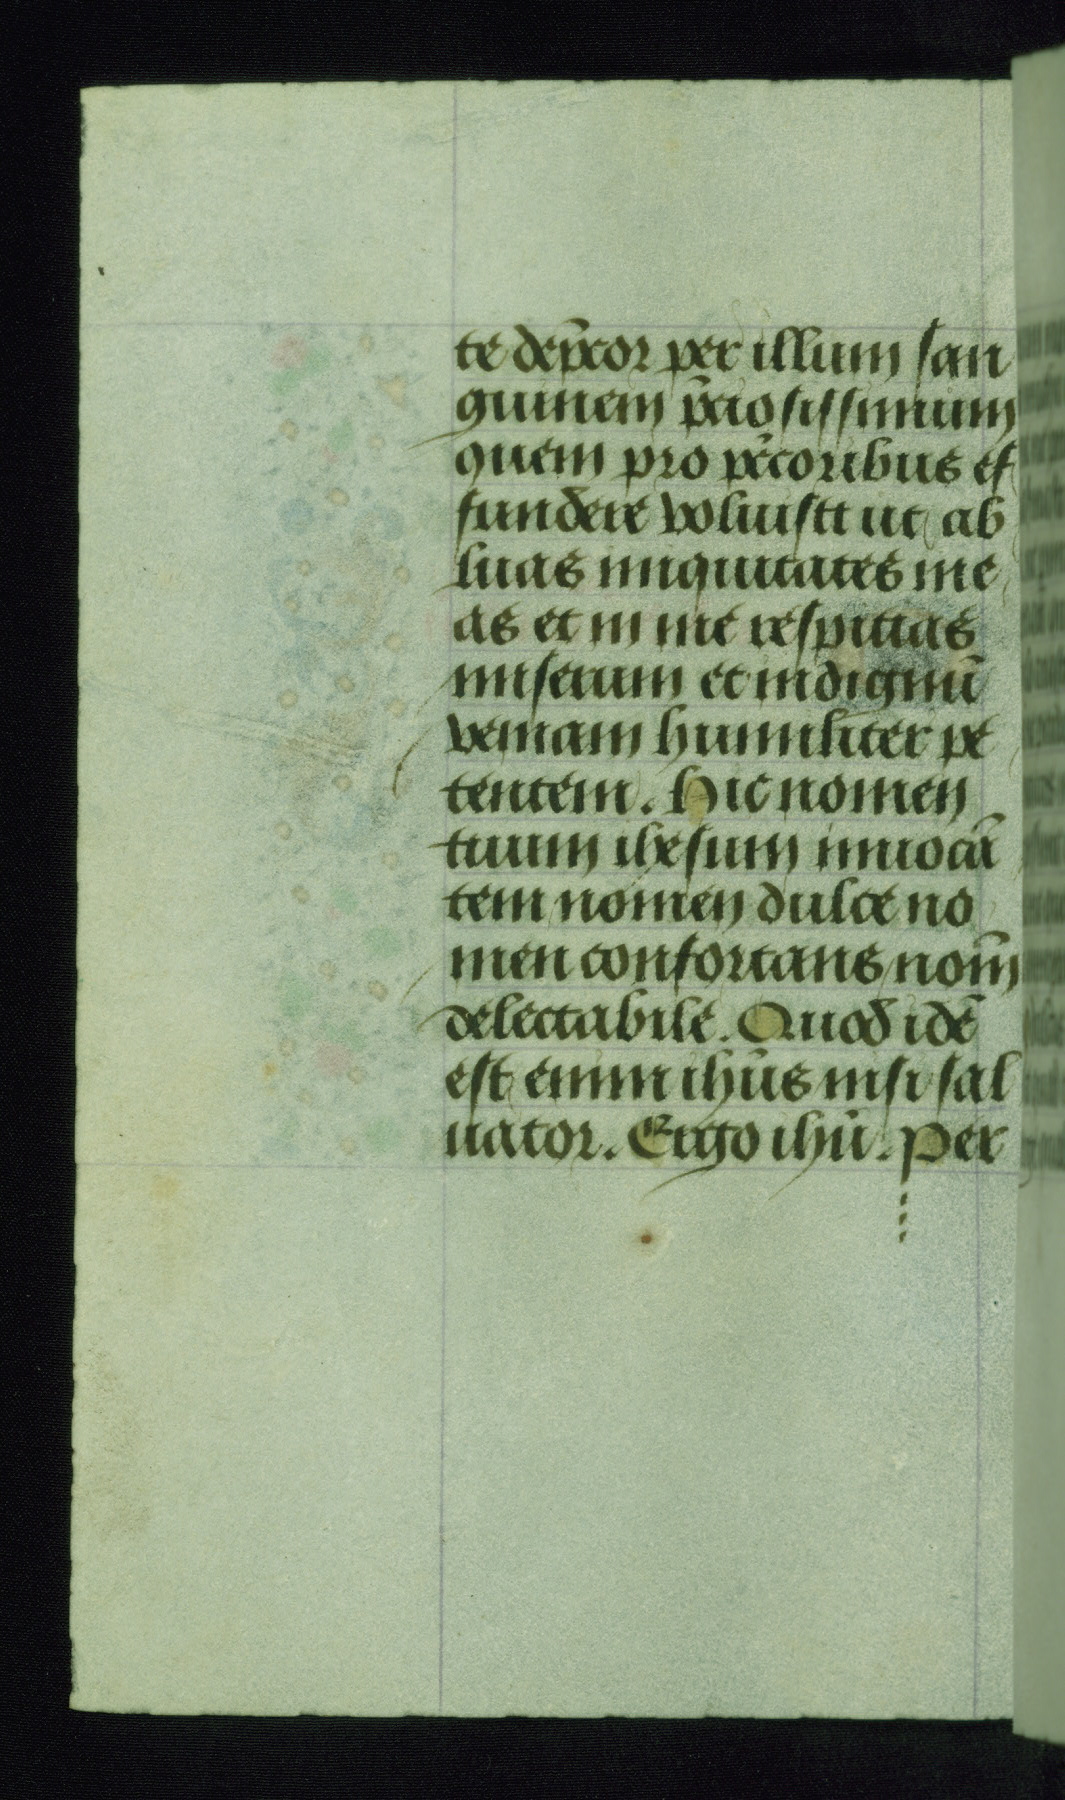 te dep̄cor per illum san
guinem p̄ciosissimum
quem pro pc̄coribus ef
fundere voluisti ut ab
luas iniquitates me
as et in me respicias
miserum et indignū
veniam humiliter pe
tentem. Hic nomen
tuum ihesum inuocā
tem nomen dulce no
men confortans nom̄
delectabile. Quod idē
est enim ihūs nisi sal
uator. Ergo ihū. Per